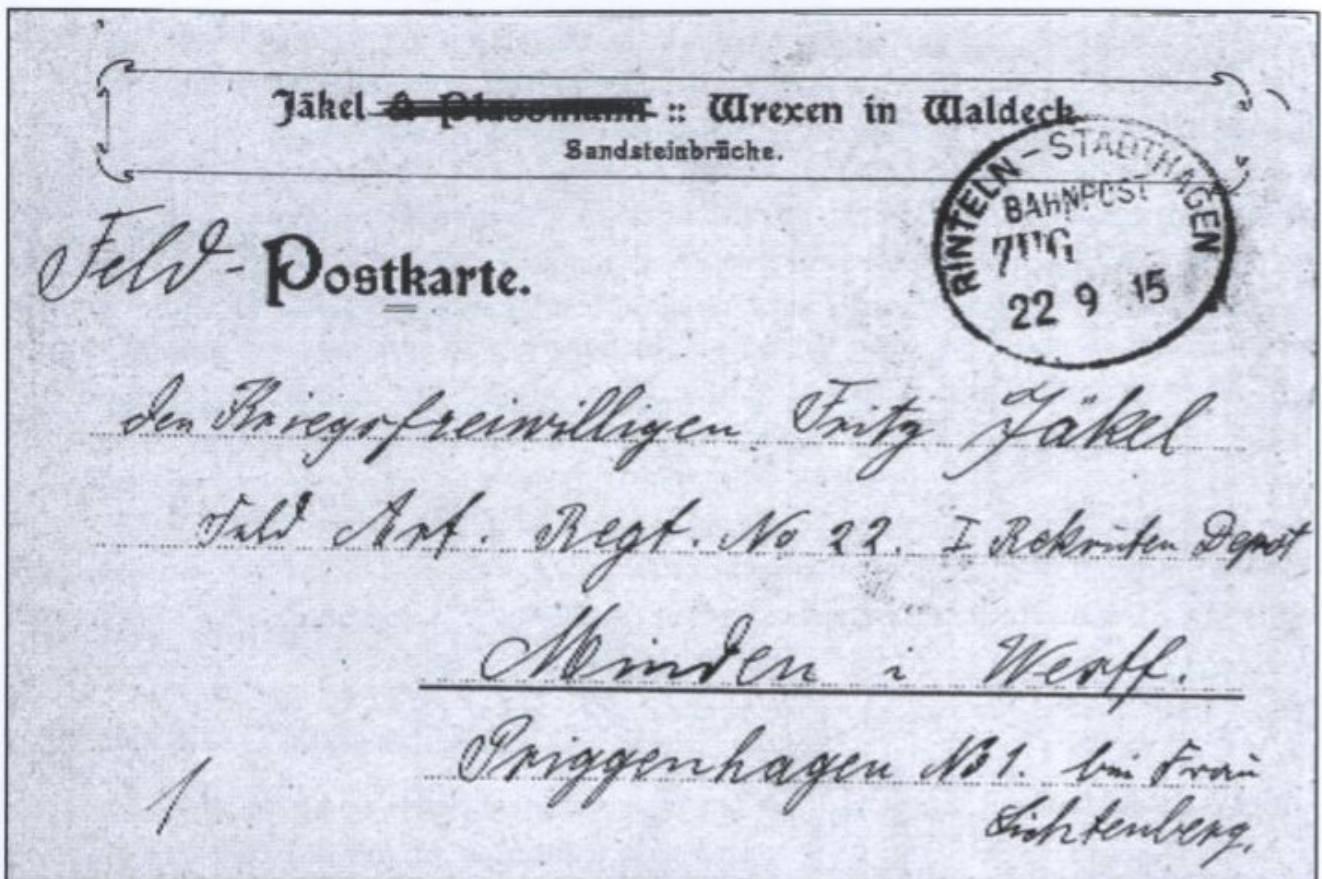 Jäkel & Plassmann :: Wrexen in Waldeck
Sandsteinbrüche.
RINTELN - STADTHAGEN
BAHNPOST
ZUG
22 9 15
Feld-Postkarte.
den Kriegsfreiwilligen Fritz Jäkel
Feld Art. Regt. No 22. I Rekruten Depot
Minden i Westf.
Priggenhagen No 1. bei Frau
Lichtenberg.